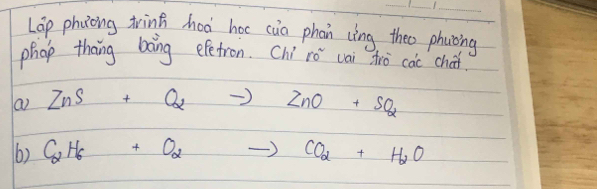 Lập phương trình hoá học của phản ứng theo phương
pháp thăng bằng electron. Chỉ rõ vai trò các chất.
a) ZnS + O₂ → ZnO + SO₂
b) C₂H₆ + O₂ → CO₂ + H₂O